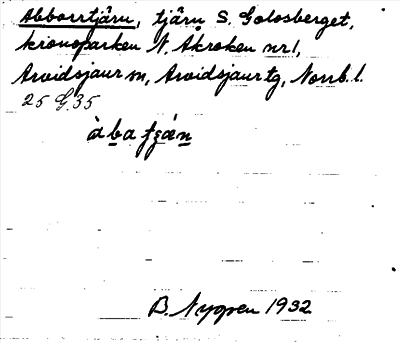 Abborrtjärn, tjärn S. Golosberget,
kronoparken N. Åkroken nr 1,
Arvidsjaur sn, Arvidsjaur tg, Norrb. l.
25 G 35
B. Nygren 1932